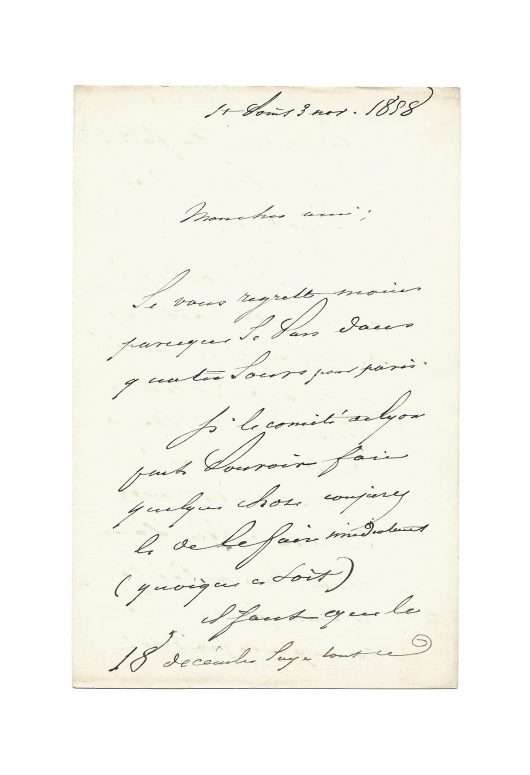 St Point 3 nov. 1858
Mon cher ami;
Je vous regrette moins
parceque Je Pars dans
quatre Jours pour paris.
Si le comité de Lyon
peut Pouvoir faire
quelque chose conjurez
le de le faire immédiatement
(quoique ce soit)
Il faut que le
18 décembre J'aye tout ce